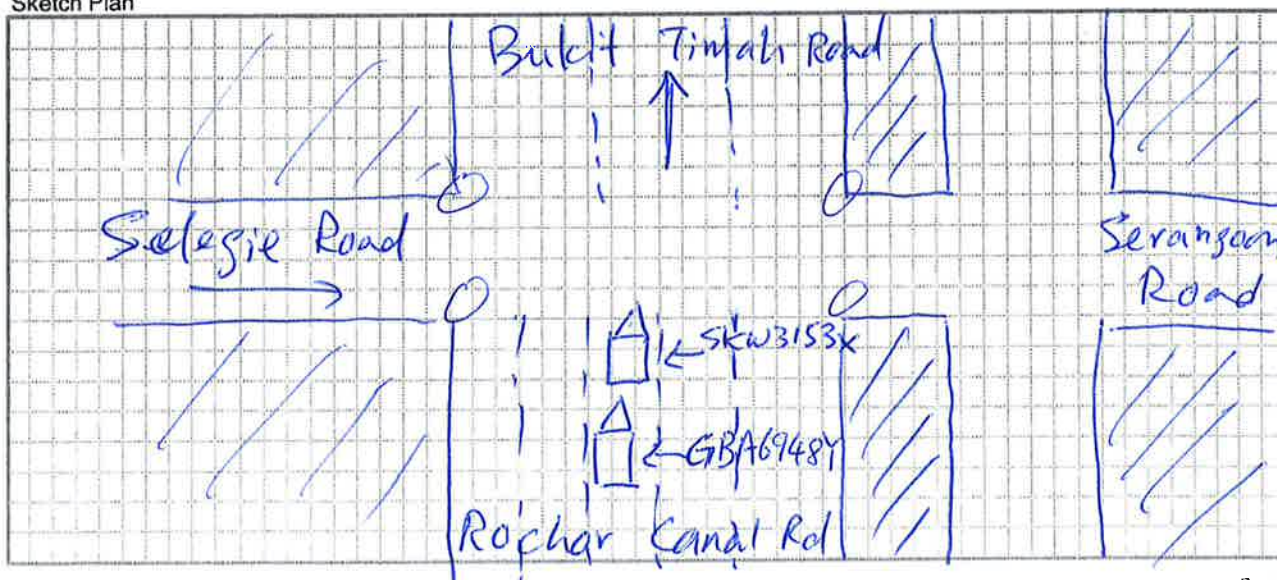 Sketch Plan
Bukit Timah Road
Selegie Road
Serangoon
Road
SKW3153X
GBA6948Y
Rochor Canal Rd